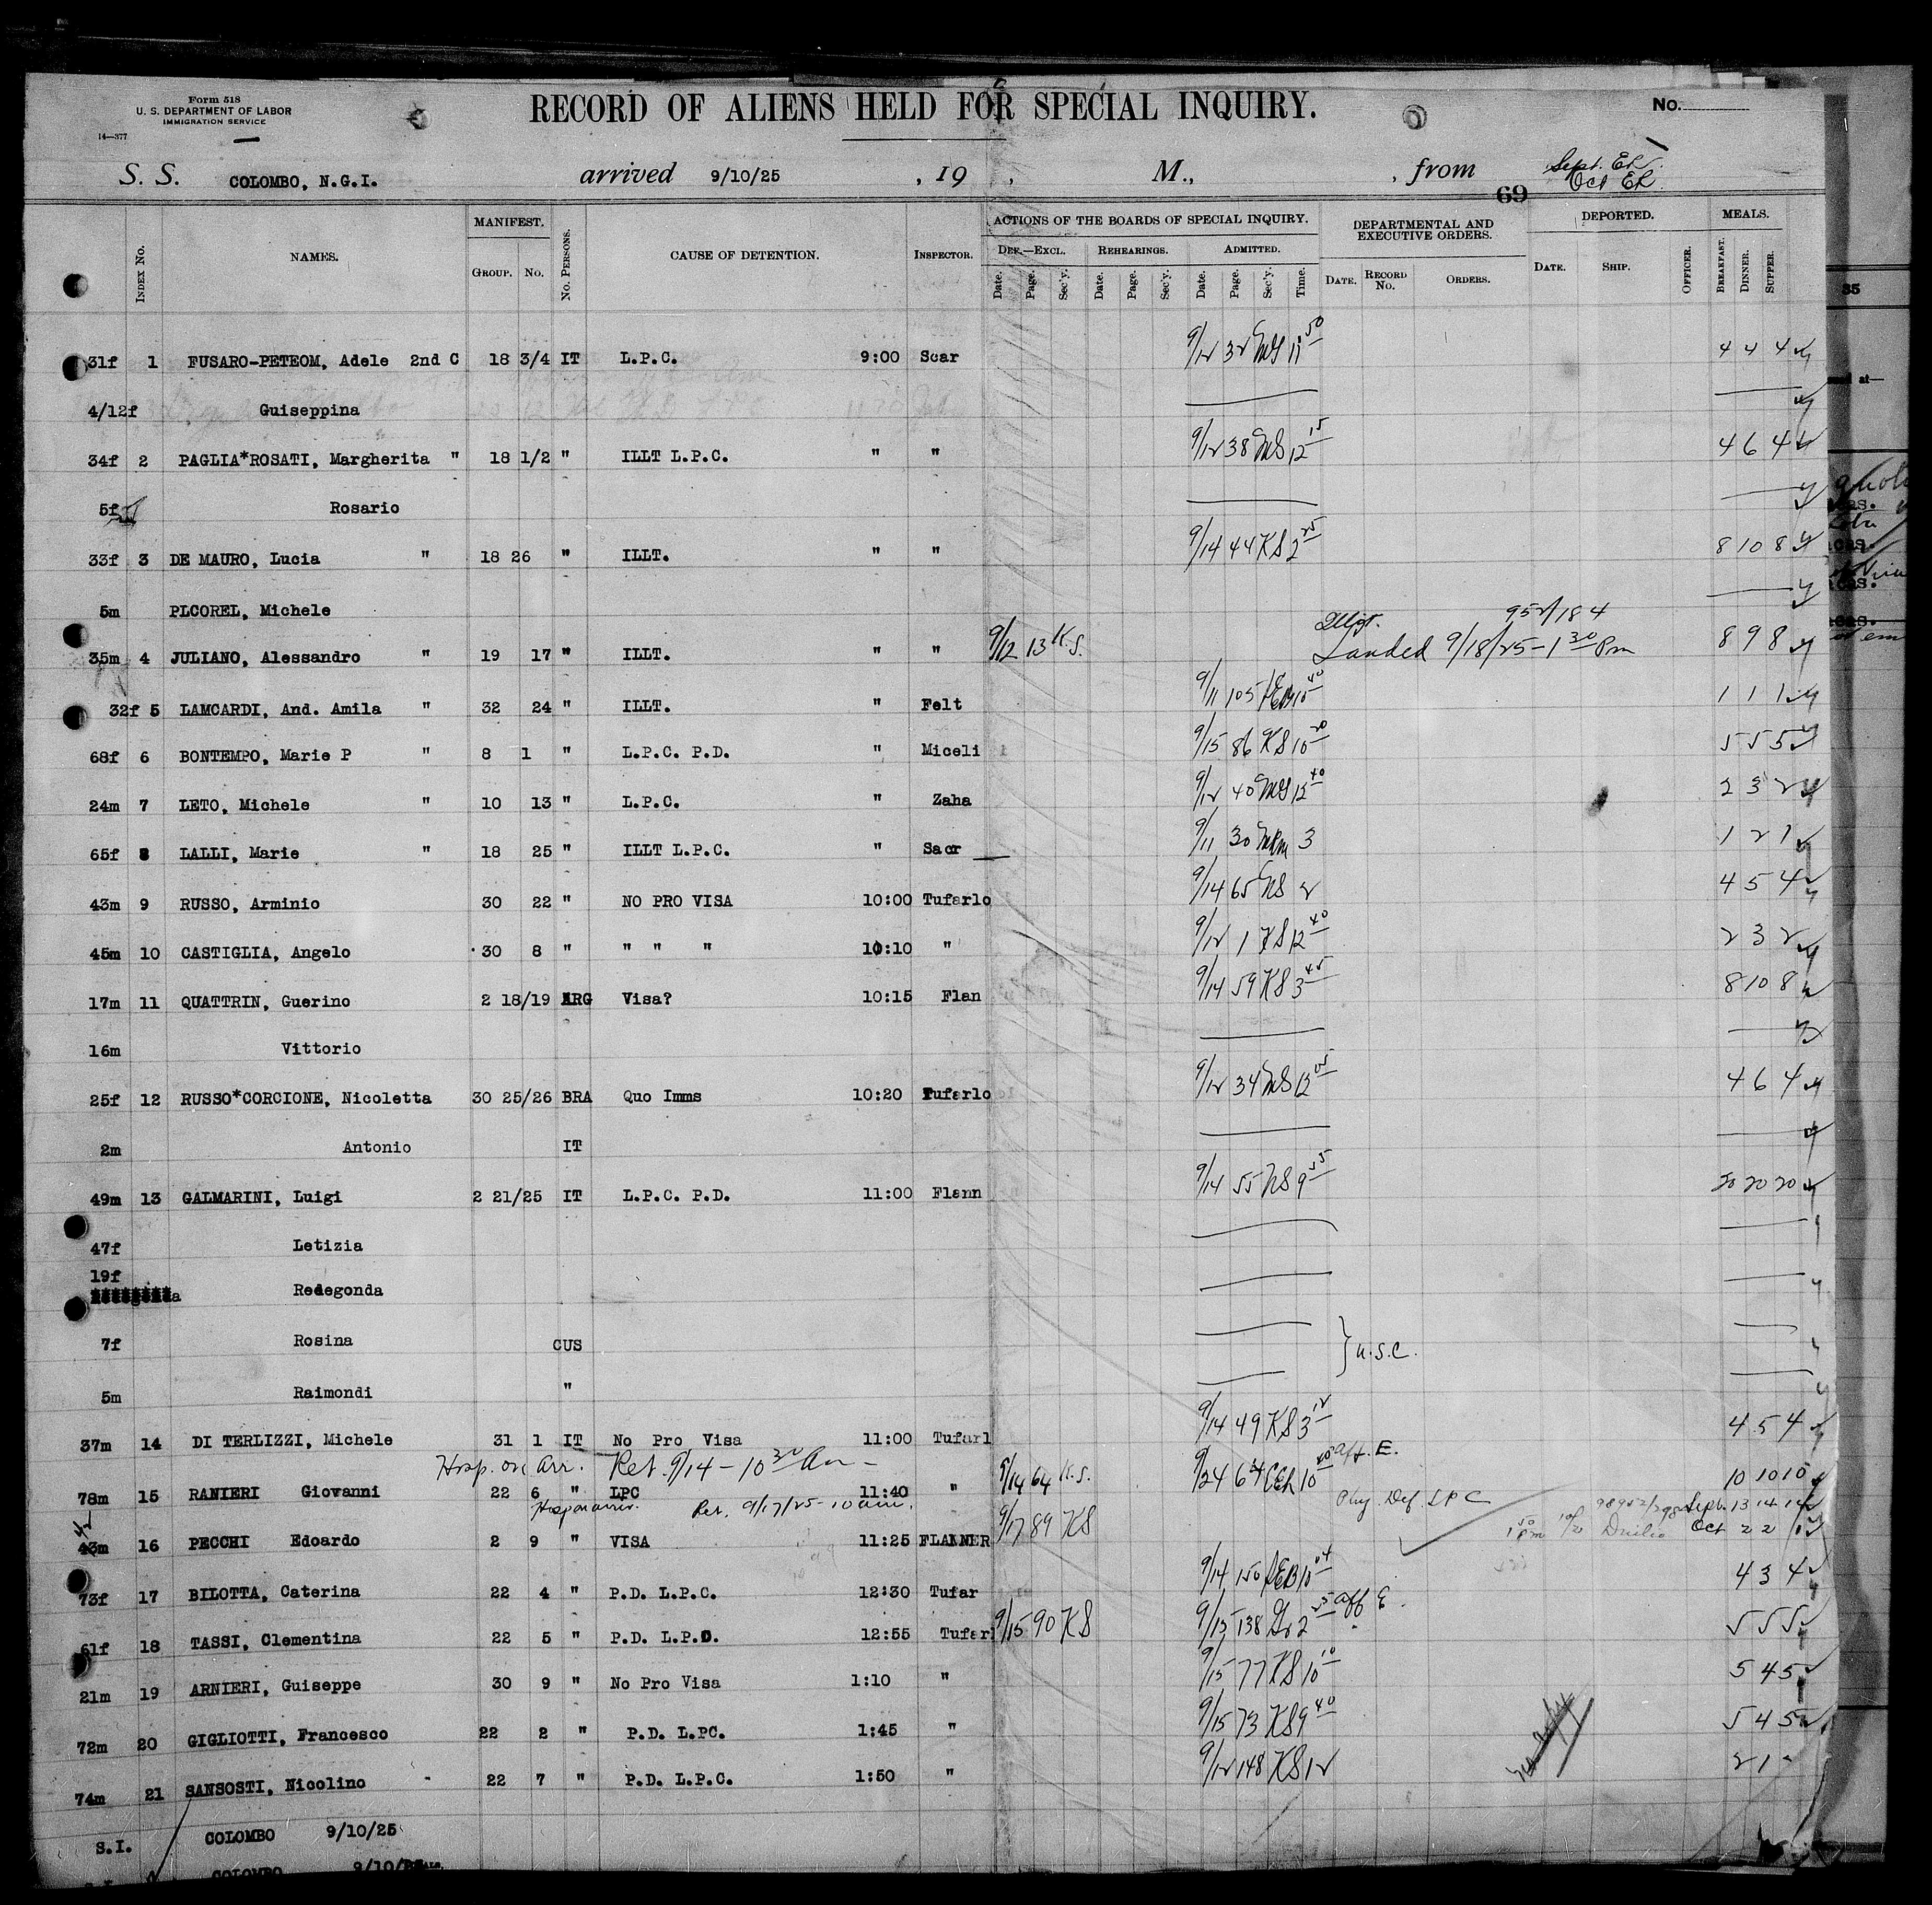 Form 518
U. S. DEPARTMENT OF LABOR
IMMIGRATION SERVICE
14—377
RECORD OF ALIENS HELD FOR SPECIAL INQUIRY.
No.
S. S. COLOMBO, N.G.I. arrived 9/10/25 , 19 , M., , from Sept. ER.
Oct ER.
69
INDEX No. NAMES. MANIFEST. GROUP. No. No. PERSONS. CAUSE OF DETENTION. INSPECTOR. ACTIONS OF THE BOARDS OF SPECIAL INQUIRY. DEPARTMENTAL AND EXECUTIVE ORDERS. DEPORTED. MEALS.
DEF.—EXCL. REHEARINGS. ADMITTED.
Date. Page. Sec'y. Date. Page. Sec'y. Date. Page. Sec'y. Time. DATE. RECORD No. ORDERS. DATE. SHIP. OFFICER. BREAKFAST. DINNER. SUPPER.
31f 1 FUSARO-PETEOM, Adele 2nd C 18 3/4 IT L.P.C. 9:00 Scar 9/12 32 MS 11 50 4 4 4
4/12f Guiseppina
34f 2 PAGLIA*ROSATI, Margherita " 18 1/2 " ILLT L.P.C. " " 9/12 38 MS 12 15 4 6 4
5f Rosario
33f 3 DE MAURO, Lucia " 18 26 " ILLT. " " 9/14 44 KS 2 25 8 10 8
5m PLCOREL, Michele
35m 4 JULIANO, Alessandro " 19 17 " ILLT. " " 9/12 13 K.S. Landed 9/18/25 - 1 30 Pm 8 9 8
32f 5 LAMCARDI, And. Amila " 32 24 " ILLT. " Felt 9/11 105 10 40 1 1 1
68f 6 BONTEMPO, Marie P " 8 1 " L.P.C. P.D. " Miceli 9/15 86 KS 10 20 5 5 5
24m 7 LETO, Michele " 10 13 " L.P.C. " Zaha 9/12 40 MS 12 40 2 3 2
65f 8 LALLI, Marie " 18 25 " ILLT L.P.C. " Sacr 9/11 30 3 1 2 1
43m 9 RUSSO, Arminio 30 22 " NO PRO VISA 10:00 Tufarlo 9/14 65 KS 2 4 5 4
45m 10 CASTIGLIA, Angelo 30 8 " " " " 10:10 " 9/12 1 KS 12 40 2 3 2
17m 11 QUATTRIN, Guerino 2 18/19 ARG Visa? 10:15 Flan 9/14 59 KS 3 45 8 10 8
16m Vittorio
25f 12 RUSSO*CORCIONE, Nicoletta 30 25/26 BRA Quo Imms 10:20 Tufarlo 9/12 34 MS 12 05 4 6 4
2m Antonio IT
49m 13 GALMARINI, Luigi 2 21/25 IT L.P.C. P.D. 11:00 Flann 9/14 55 KS 9 55 20 20 20
47f Letizia
19f Redegonda
7f Rosina CUS } U.S.C.
5m Raimondi "
37m 14 DI TERLIZZI, Michele 31 1 IT No Pro Visa 11:00 Tufarl 9/14 49 KS 3 12 4 5 4
Hosp. on Arr. Ret. 9/14 - 10 30 Am -
78m 15 RANIERI Giovanni 22 6 " LPC 11:40 " 9/14 64 K.S. 9/24 64 10 40 aff. E. 10 10 10
Hosp on arriv. Ret. 9/17/25 - 10 am. Phy. Def. LPC
43m 16 PECCHI Edoardo 2 9 " VISA 11:25 FLANNER 9/17 89 KS Duilio Sept. 13 14 14
Oct 2 2 1
73f 17 BILOTTA, Caterina 22 4 " P.D. L.P.C. 12:30 Tufar 9/14 150 10 04 4 3 4
61f 18 TASSI, Clementina 22 5 " P.D. L.P.C. 12:55 Tufar 9/15 90 KS 9/15 138 2 55 aff E. 5 5 5
21m 19 ARNIERI, Guiseppe 30 9 " No Pro Visa 1:10 " 9/15 77 KS 10 10 5 4 5
72m 20 GIGLIOTTI, Francesco 22 2 " P.D. L.PC. 1:45 " 9/15 73 KS 9 40 5 4 5
74m 21 SANSOSTI, Nicolino 22 7 " P.D. L.P.C. 1:50 " 9/12 148 KS 12 2 1 -
S.I. COLOMBO 9/10/25
COLOMBO